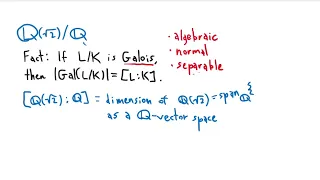 ℚ(√2)/ℚ
Fact: If L/K is Galois,
then |Gal(L/K)| = [L:K].
• algebraic
• normal
• separable
[ℚ(√2):ℚ] = dimension of ℚ(√2) = span_ℚ{
as a ℚ-vector space